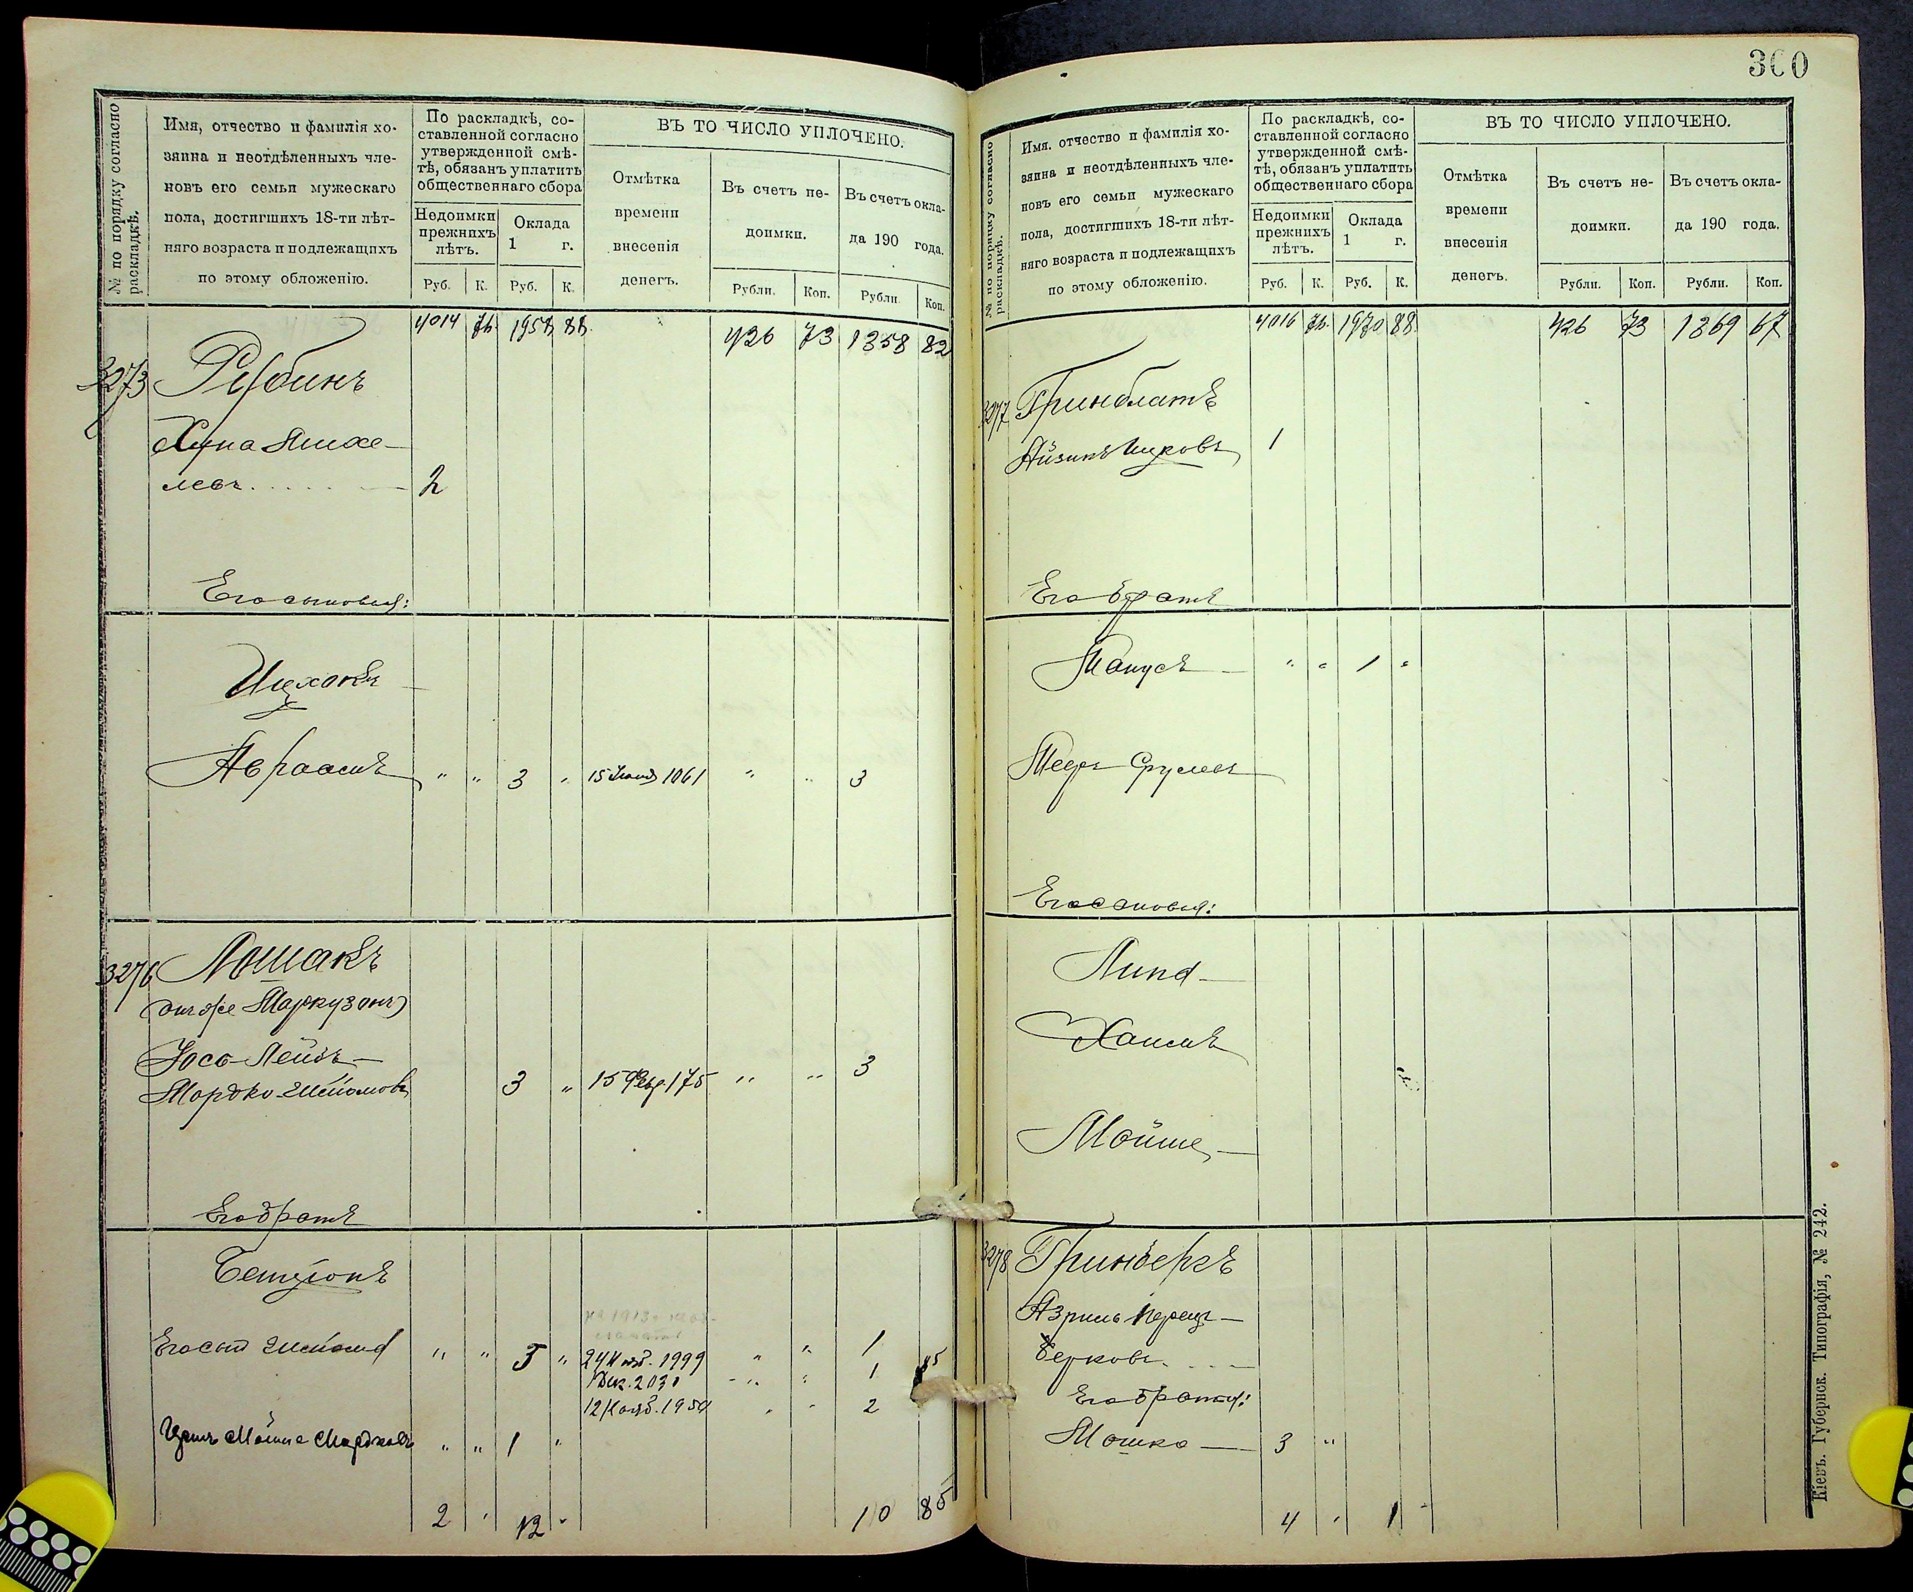 300
№ по порядку согласно раскладкѣ.
Имя, отчество и фамилія хо-
зяина и неотдѣленныхъ чле-
новъ его семьи мужескаго
пола, достигшихъ 18-ти лѣт-
няго возраста и подлежащихъ
по этому обложенію.
По раскладкѣ, со-
ставленной согласно
утвержденной смѣ-
тѣ, обязанъ уплатить
общественнаго сбора
Недоимки прежнихъ лѣтъ.
Оклада 1 г.
Руб. К. Руб. К.
ВЪ ТО ЧИСЛО УПЛОЧЕНО.
Отмѣтка
времени
внесенія
денегъ.
Въ счетъ не-
доимки.
Въ счетъ окла-
да 190 года.
Рубли. Коп. Рубли. Коп.
4014 1958 426 73 1358 82
3273 Рубинъ
Хуна
левъ 2
Его сыновья:
Ицхокъ
Авраамъ " " 3 " 15 1061 " " 3
3276 Лошакъ
(онъ же Маркузонъ)
Іось-Лейбъ
Мордко-Шліомовъ 3 " 15 Февр. 175 " " 3
Его братъ
Бенціонъ
Его сынъ Шліома " " 5 " 24 Нояб. 1999 " " 1
Дек. 2030 " " 1 85
12 Нояб. 1950 " " 2
Мошко Мордковъ " " 1 "
2 " 12 " 10 85
№ по порядку согласно раскладкѣ.
Имя, отчество и фамилія хо-
зяина и неотдѣленныхъ чле-
новъ его семьи мужескаго
пола, достигшихъ 18-ти лѣт-
няго возраста и подлежащихъ
по этому обложенію.
По раскладкѣ, со-
ставленной согласно
утвержденной смѣ-
тѣ, обязанъ уплатить
общественнаго сбора
Недоимки прежнихъ лѣтъ.
Оклада 1 г.
Руб. К. Руб. К.
ВЪ ТО ЧИСЛО УПЛОЧЕНО.
Отмѣтка
времени
внесенія
денегъ.
Въ счетъ не-
доимки.
Въ счетъ окла-
да 190 года.
Рубли. Коп. Рубли. Коп.
4016 1970 88 426 73 1369 67
3277 Гринблатъ
Айзикъ Ицковъ 1
Его братъ
Манусъ " " 1 "
Мееръ Срулевъ
Его сыновья:
Липа
Хаимъ
Мойше
3278 Гринбергъ
Азриль Перец-
Берковъ
Его братья:
Мошко 3 "
4 " 1
Кіевъ. Губернск. Типографія, № 242.